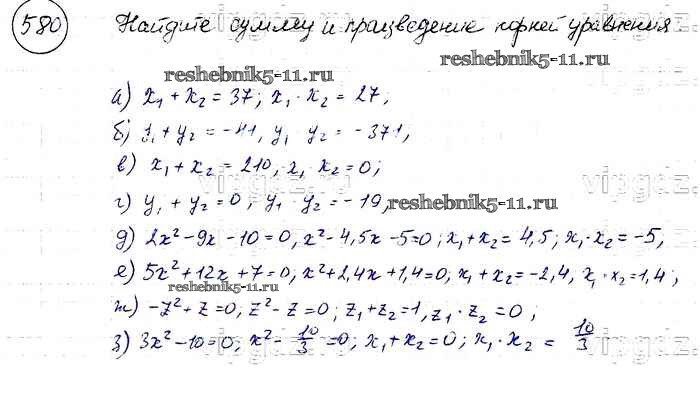 580 Найдите сумму и произведение корней уравнения
reshebnik5-11.ru
reshebnik5-11.ru
а) x₁ + x₂ = 37; x₁ · x₂ = 27;
б) y₁ + y₂ = -41, y₁ y₂ = -371,
в) x₁ + x₂ = 210, x₁ x₂ = 0;
vipgdz.com
г) y₁ + y₂ = 0; y₁ y₂ = -19, reshebnik5-11.ru
д) 2x² - 9x - 10 = 0, x² - 4,5x - 5 = 0; x₁ + x₂ = 4,5; x₁ · x₂ = -5,
е) 5x² + 12x + 7 = 0, x² + 2,4x + 1,4 = 0; x₁ + x₂ = -2,4, x₁ · x₂ = 1,4;
reshebnik5-11.ru
ж) -z² + z = 0, z² - z = 0; z₁ + z₂ = 1, z₁ · z₂ = 0;
з) 3x² - 10 = 0; x² - 10/3 = 0; x₁ + x₂ = 0; x₁ · x₂ = 10/3